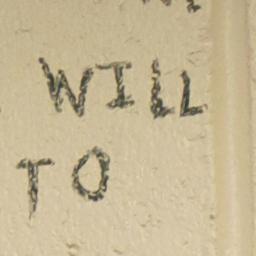 WILL
TO